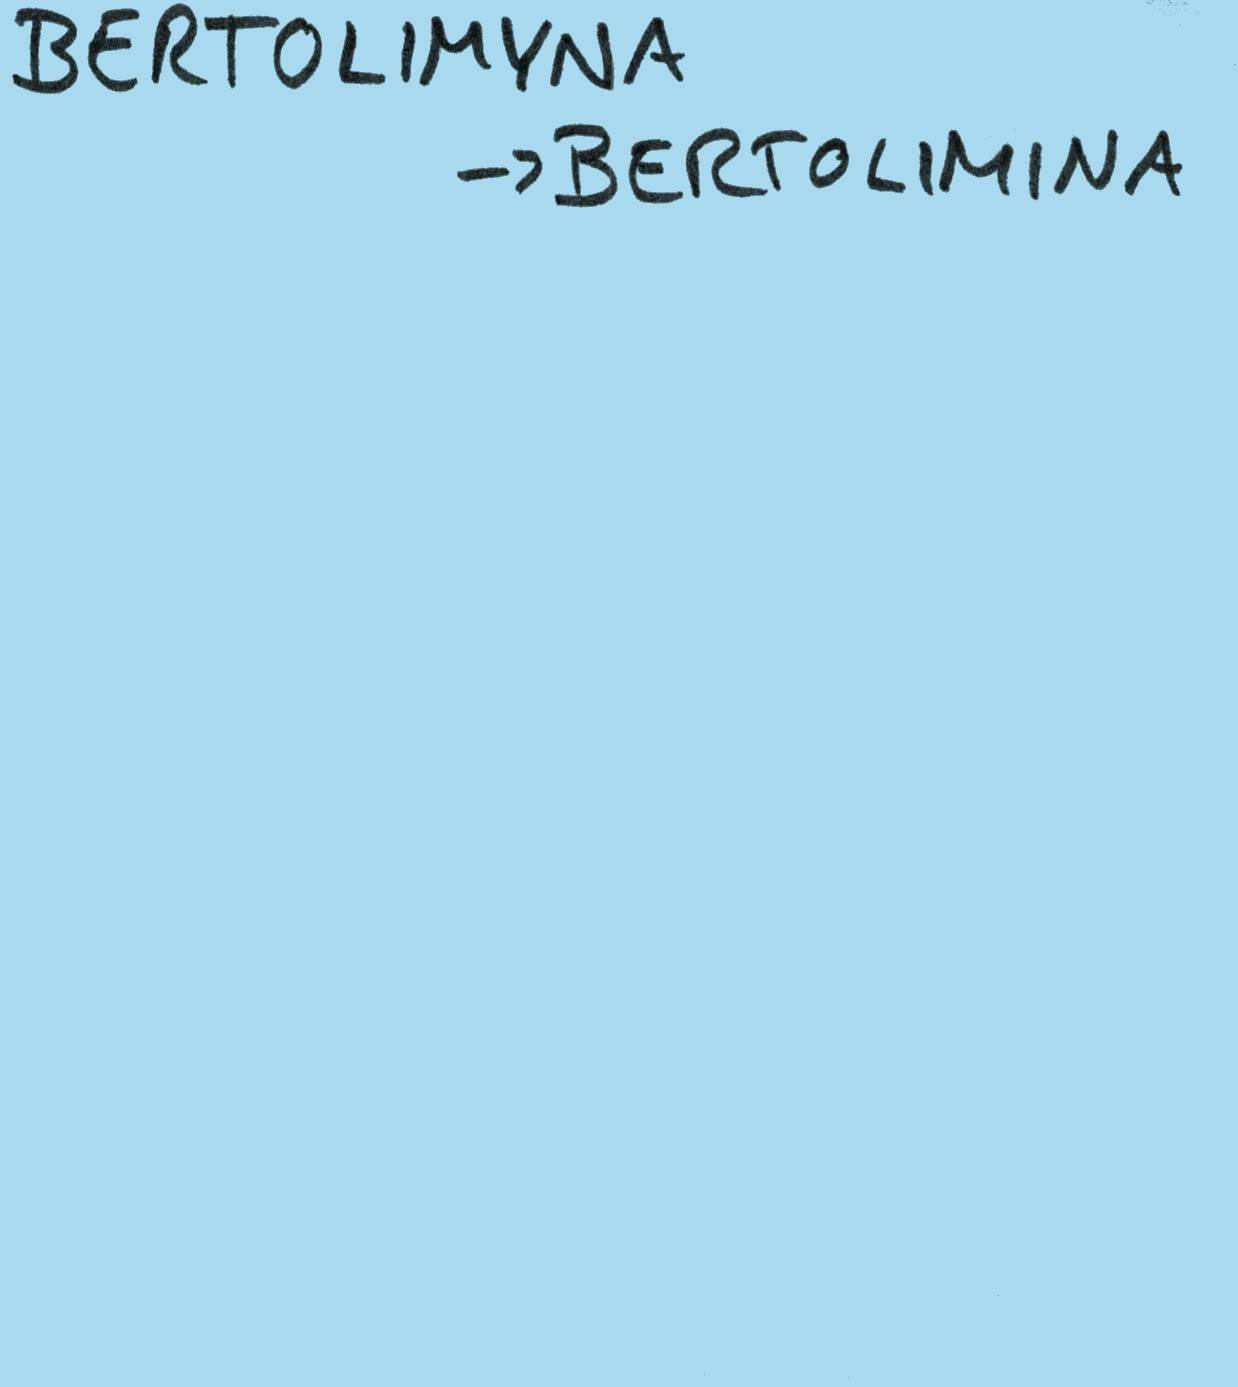 BERTOLIMYNA
->BERTOLIMINA